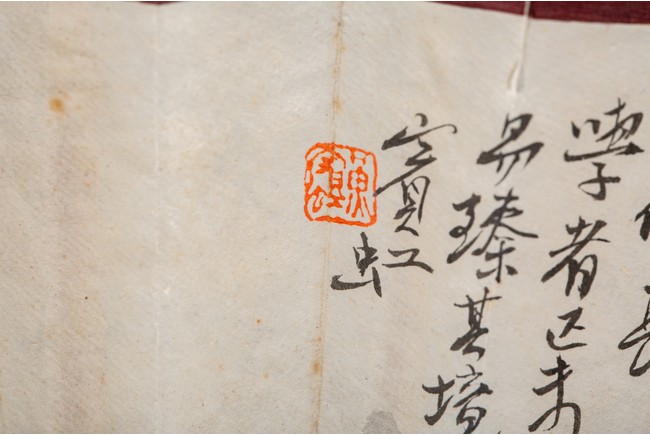 學者正未
易臻其境
賓虹